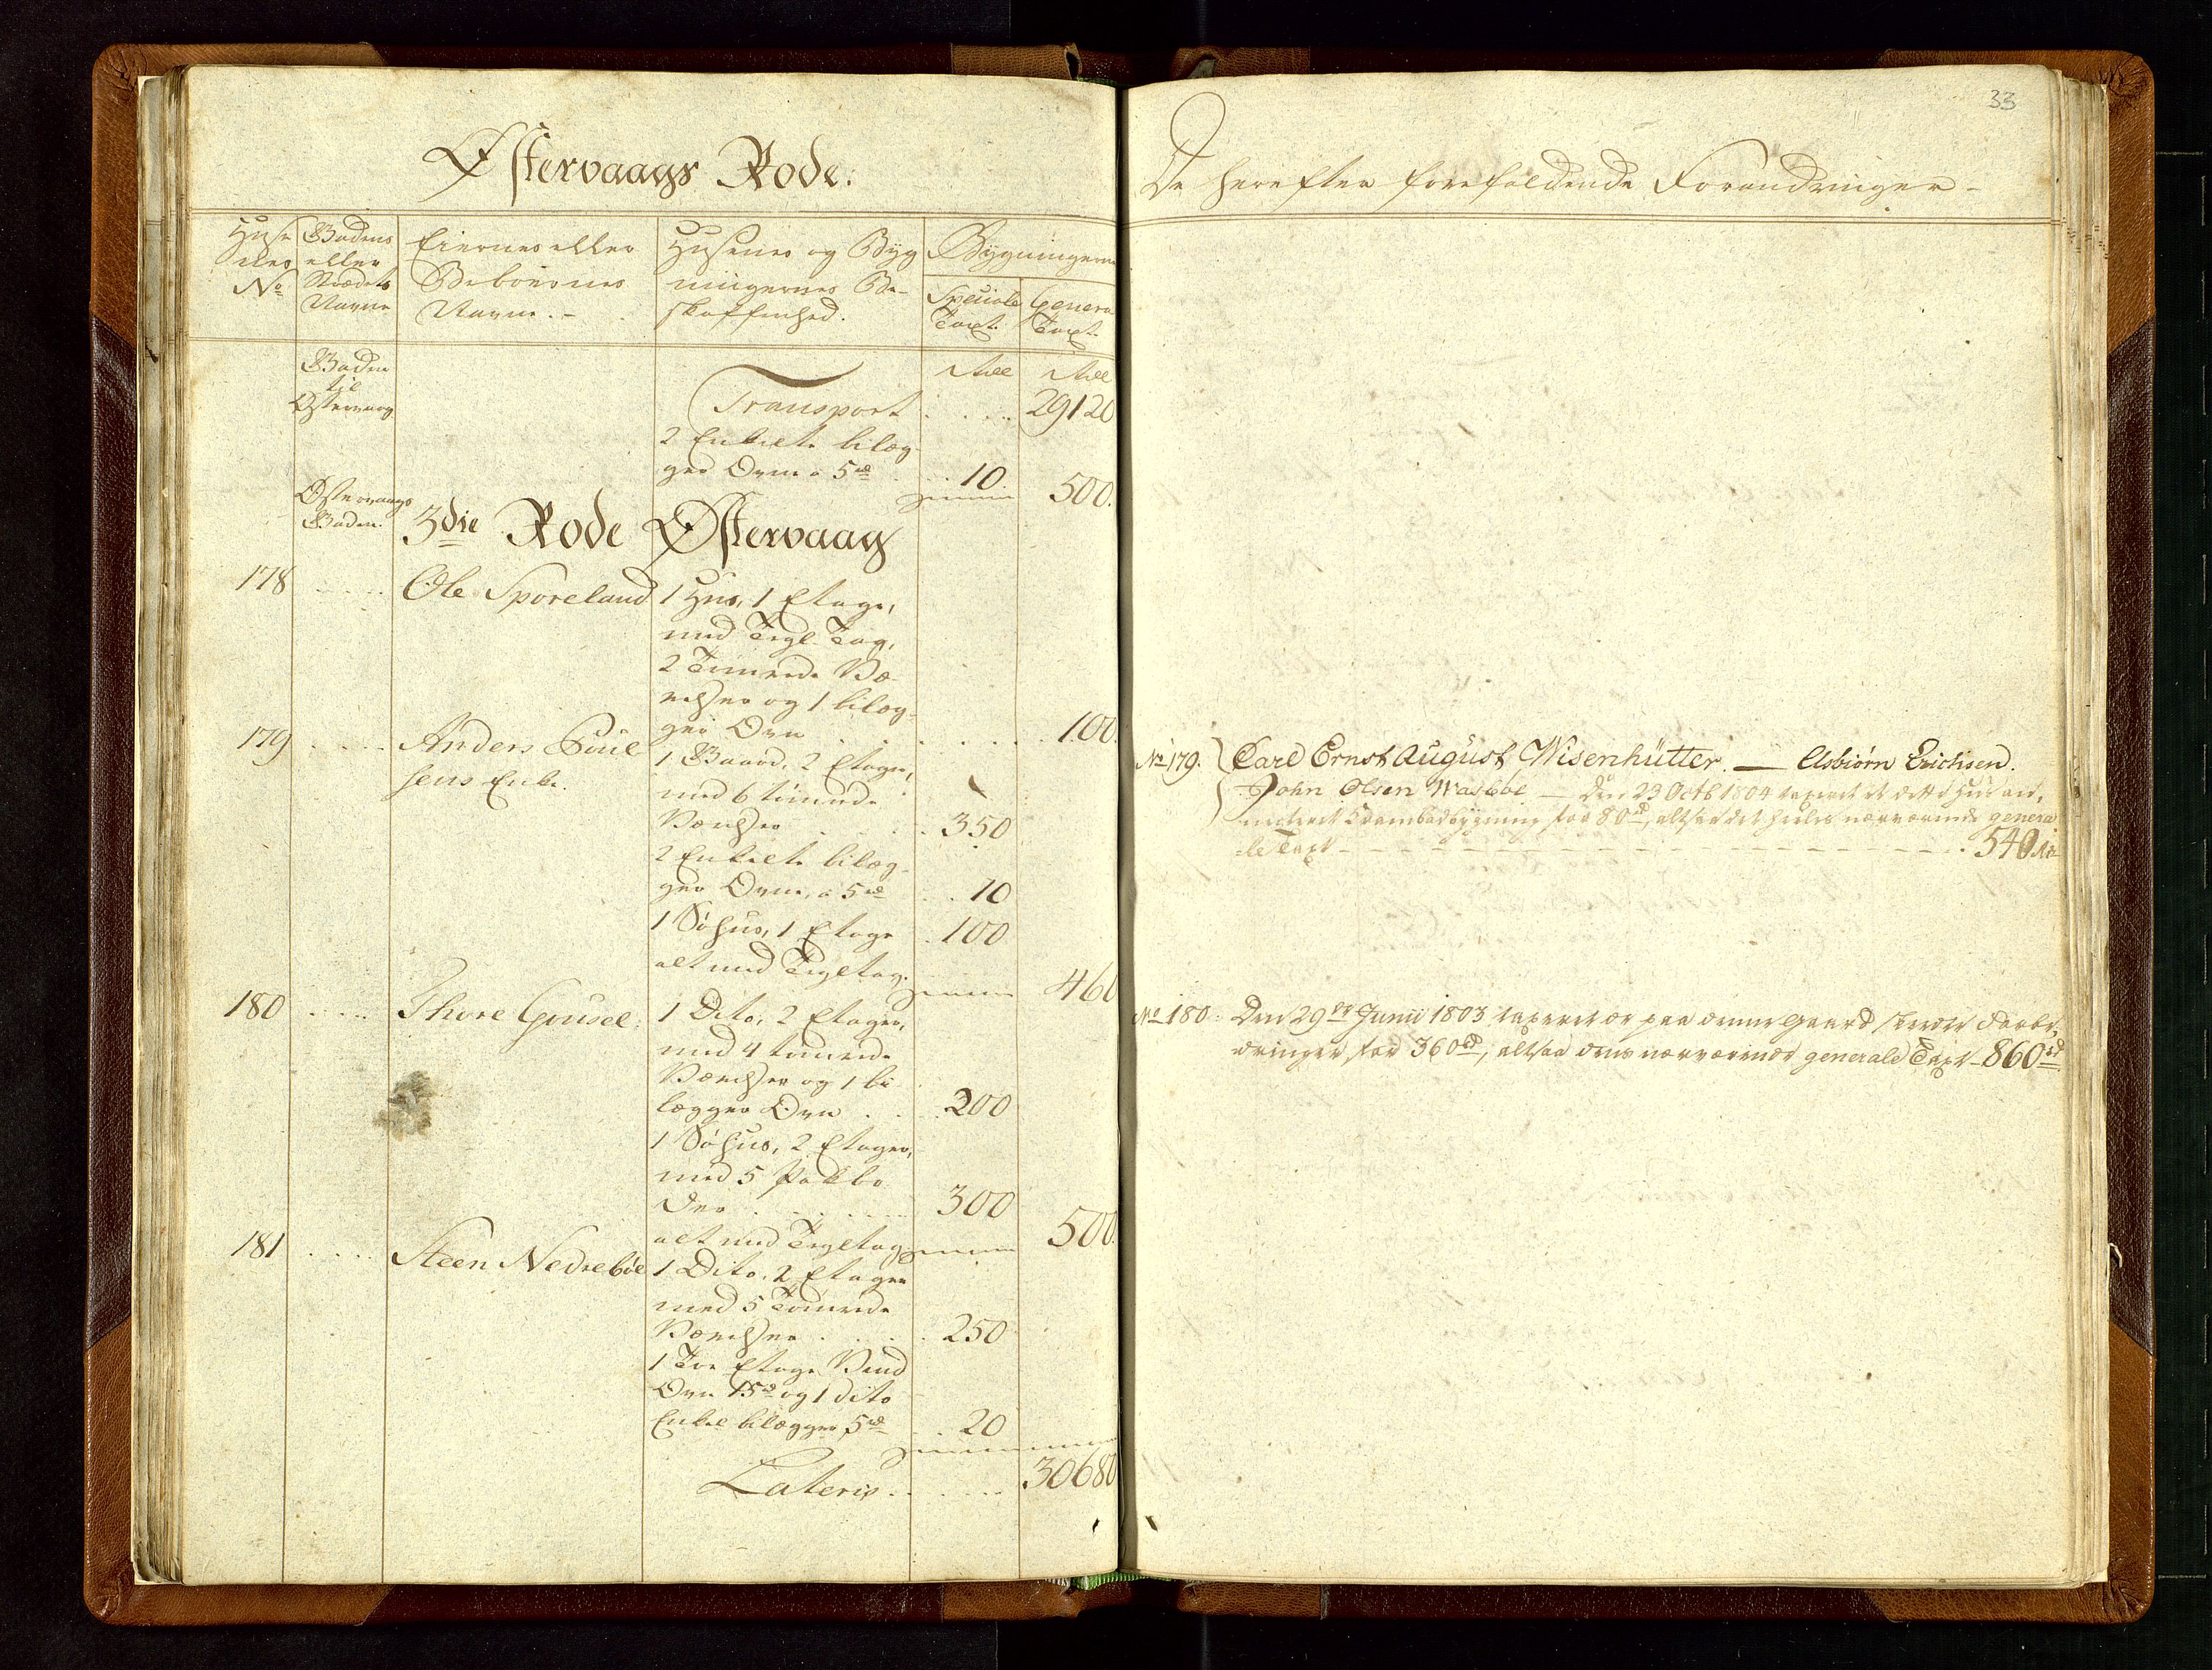 Østervaags Rode.
Huse
nes
No
Gadens
eller
Strædets
Navne
Eiernes eller
Beboernes
Navne. -
Husenes og Byg
ningernes Be-
skaffenhed.
Bygningerne
Speciale
Taxt.
Genera
Taxt.
Gaden
til
Østervaag
Rdlr Rdlr
Transport . . . . 29120
2 Enkelte bilæg
ger Ovne a 5rd . . 10
Summa 500.
Østervaags
Gaden.
3die Rode Østervaag
178 . . . . Ole Sporeland 1 Huus, 1 Etage,
med Tegl Tag,
2 Tømrede Væ-
relser og 1 bilæg-
ger Ovn . . . . . . 100.
179 . . . . Anders Poul
sens Enke.
1 Gaard, 2 Etager,
med 6 tømrede
Værelser . . . . 350
2 Enkelte bilæg-
ger Ovne, a 5rd . . 10
1 Søhus, 1 Etage . 100
alt med Tegltag.
Summa 460
180 . . . . Thore Gousel. 1 Dito, 2 Etager,
med 4 tømrede
Værelser og 1 bi-
lægger Ovn . . . 200
1 Søhus, 2 Etager,
med 5 Pakbo
der . . . . . . 300
alt med Tegltag Summa 500.
181 . . . . Steen Nedrebøe 1 Dito, 2 Etager
med 5 Tømrede
Værelser . . . . 250
1 Toe Etage Vind
Ovn 15rd og 1 dito
Enkel bilægger 5rd . . 20
Lateris . . . . . 30680
33
De herefter forefaldende Forandringer -
No 179. Carl Ernst August Wisenhütter. — Asbiørn Erichsen.
John Olsen Wasbøe — Den 23 Octb 1804 taxeret et dette Huus an-
Krambodbygning for 80rd, altsaa det heeles nærværende genera
le Taxt - - - - - - - - - 540 Rd
No 180. Den 29de Junii 1803 taxeret de paa denne Gaard skeede Forbe-
dringer for 360rd, altsaa dens nærværende generale Taxt - 860rd